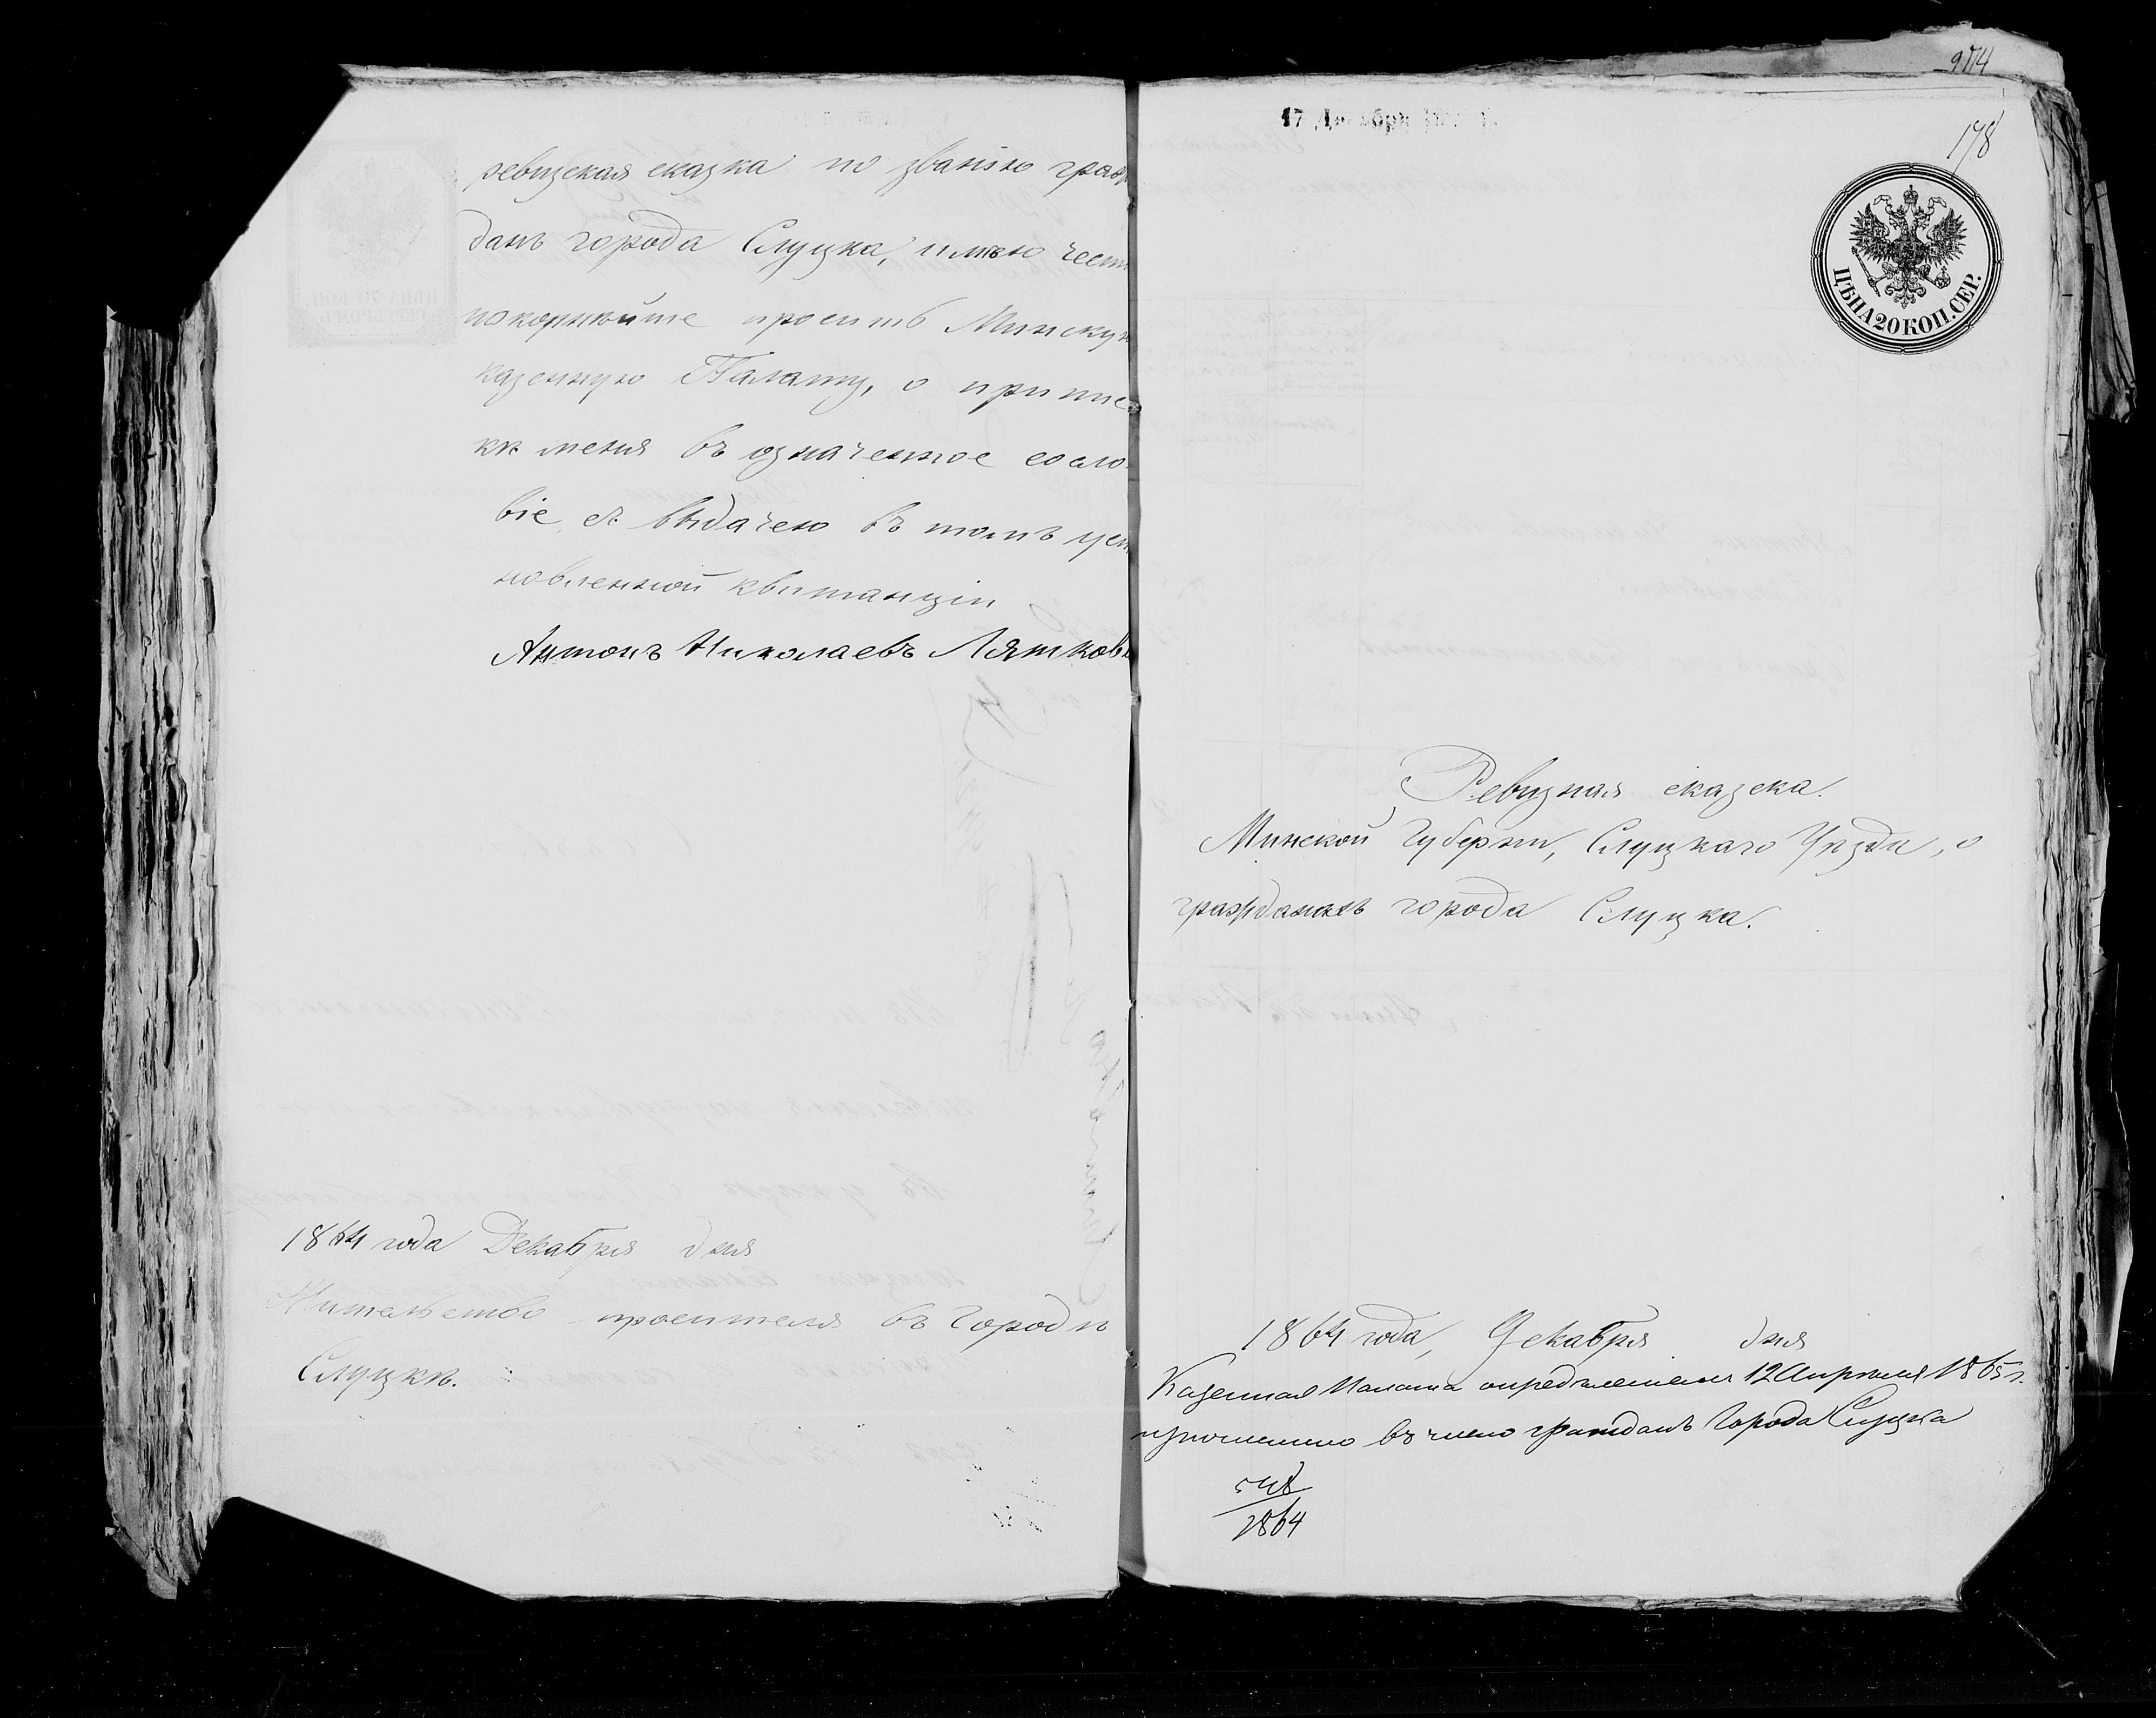 ревизская сказка по званію граж
данъ города Слуцка, имѣю чест
покорнѣйше просить Минскую
казенную Палату, о припис
кѣ меня въ означенное сосло
віе, съ выдачею въ томъ уста
новленной квитанціи
Антонъ Николаевъ Лятков
1864 года Декабря дня
Жительство просителя въ городѣ
Слуцкѣ.
974
17 Декабря
178
ЦѢНА 20 КОП. СЕР.
Ревизная сказска.
Минской Губерніи, Слуцкаго Уѣзда, о
гражданахъ города Слуцка.
1864 года, Декабря дня
Казенная Палата опредѣленіемъ 12 Апрѣля 1865 г.
въ число гражданъ Города Слуцка
548
1864